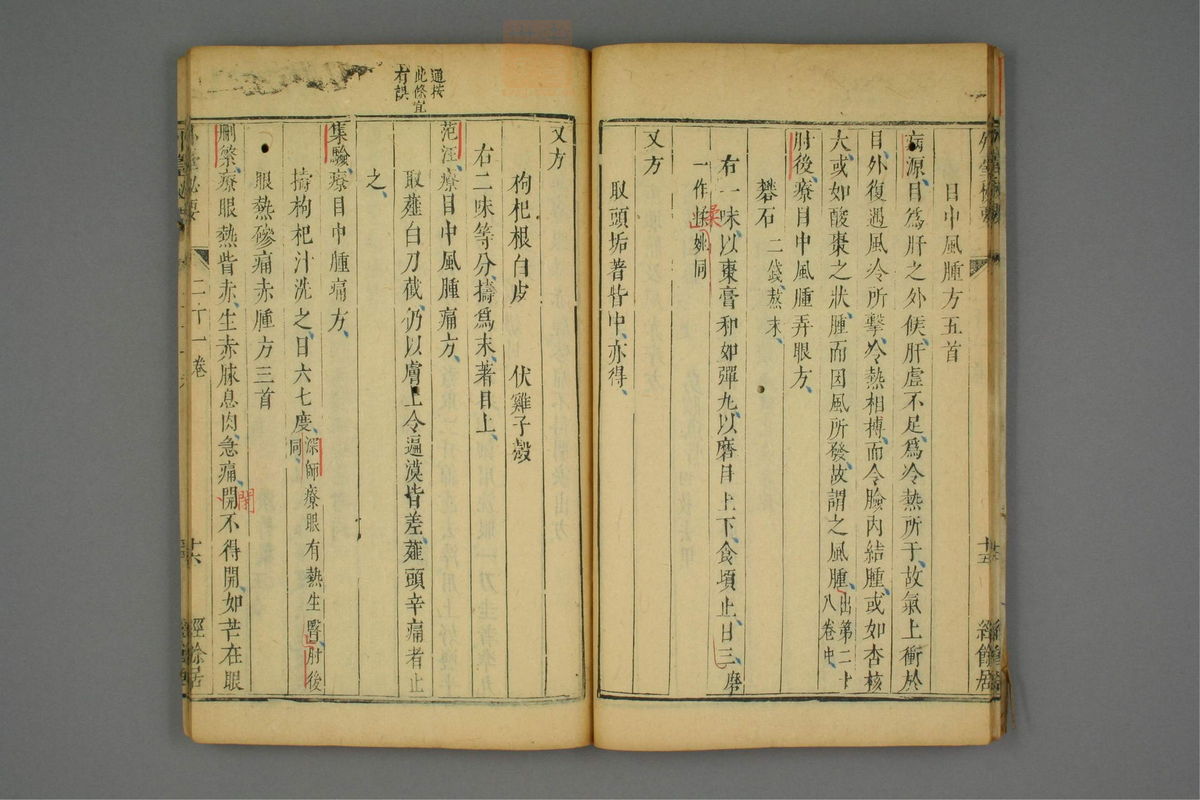 目中風腫方五首
病源、目爲肝之外候、肝虛不足、爲冷熱所干、故氣上衝於
目、外復遇風冷所擊、冷熱相搏、而令臉內結腫、或如杏核
大、或如酸棗之狀、腫而因風所發、故謂之風腫、出第二十八卷中、
肘後、療目中風腫弄眼方、
礬石二錢、熬末、
右一味、以棗膏和如彈丸、以磨目上下、食頃止、日三、磨
一作揉、姚同、
又方
取頭垢著眥中、亦得、
又方
枸杞根白皮 伏雞子殼
右二味等分、擣爲末、著目上、
通按此條宜有誤
范汪、療目中風腫痛方、
取薤白刀截、仍以膚上令遍漠皆差、薤頭辛痛者止
之、
集驗、療目中腫痛方、
擣枸杞汁洗之、日六七度、深師療眼有熱生翳、肘後同、
眼熱磣痛赤腫方三首
刪繁、療眼熱眥赤、生赤脉息肉、急痛、開不得開、如芒在眼
閉
二十一卷
十六
經餘居
十五
經餘居